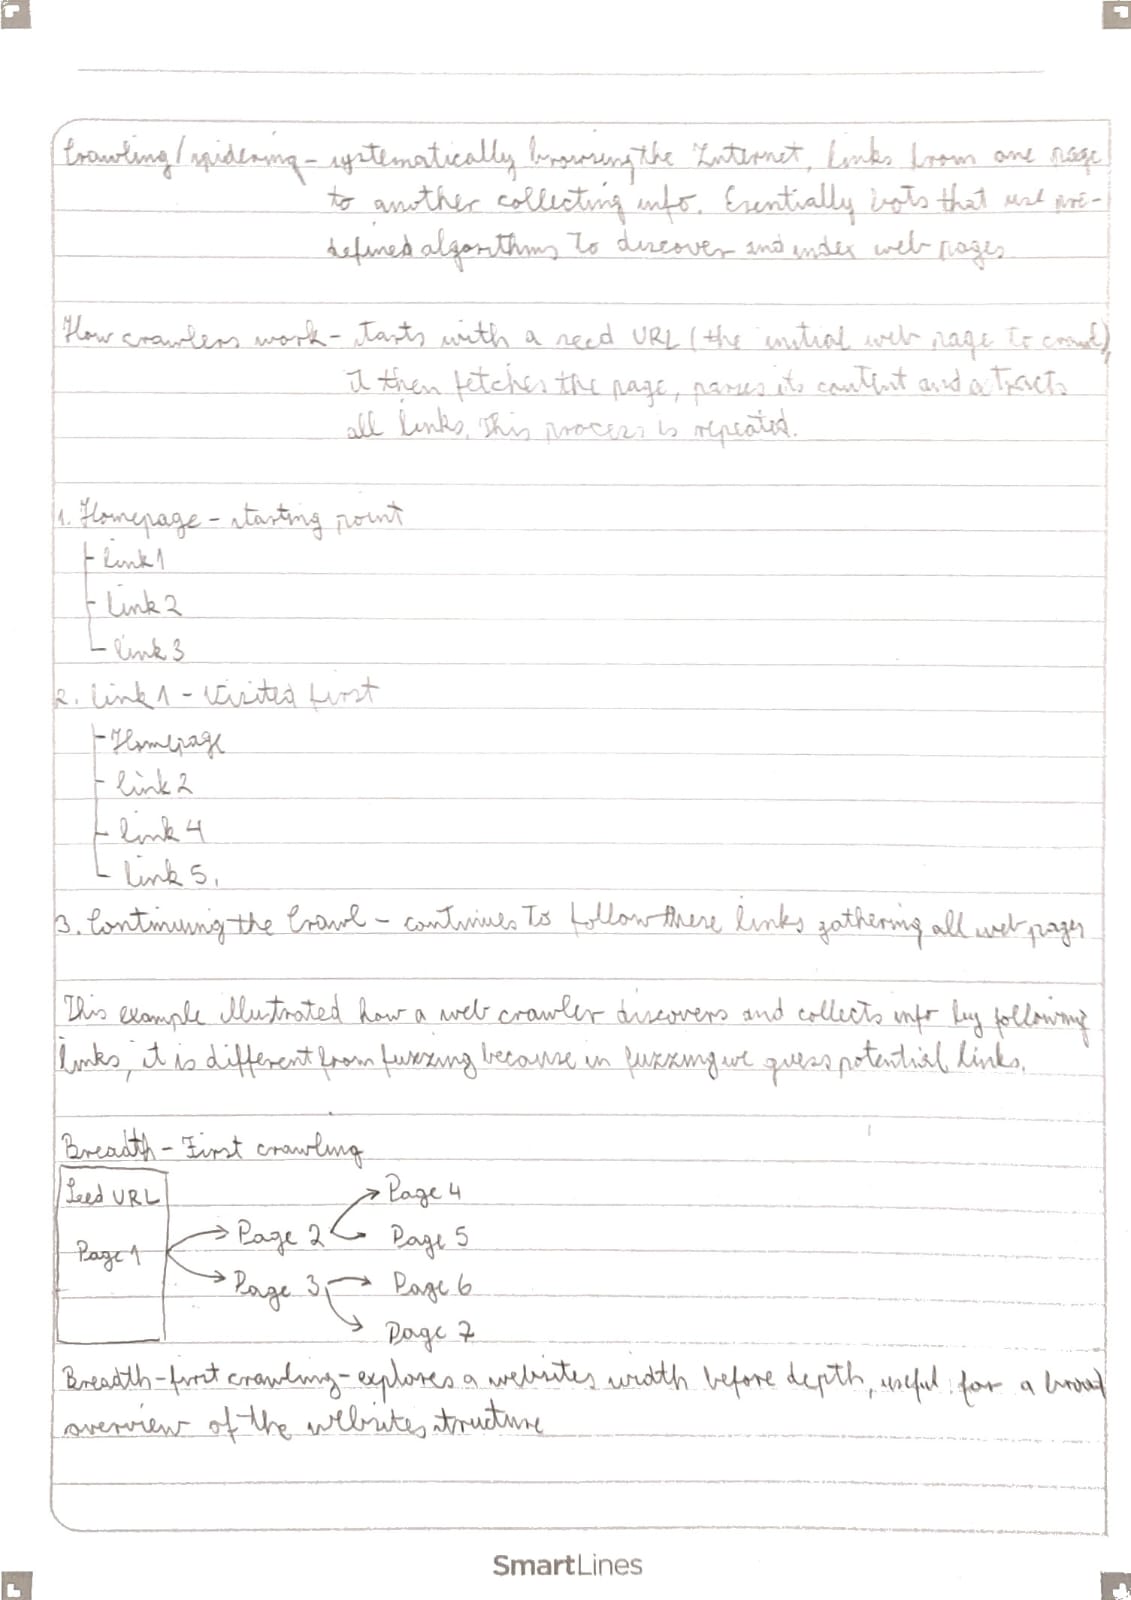 Crawling/spidering - systematically browsing the Internet, links from one page
to another collecting info. Esentially bots that use pre-
defined algorithms to discover and index web pages
How crawlers work - starts with a seed URL (the initial web page to crawl),
it then fetches the page, parses its content and extracts
all links. This process is repeated.
1. Homepage - starting point
link 1
link 2
link 3
2. link 1 - Visited first
Homepage
link 2
link 4
link 5.
3. Continuing the Crawl - continues to follow these links gathering all web pages
This example illustrated how a web crawler discovers and collects info by following
links, it is different from fuzzing because in fuzzing we guess potential links.
Breadth - First crawling
Seed URL
Page 1
Page 2
Page 3
Page 4
Page 5
Page 6
Page 7
Breadth - first crawling - explores a websites width before depth, useful for a broad
overview of the websites structure
SmartLines